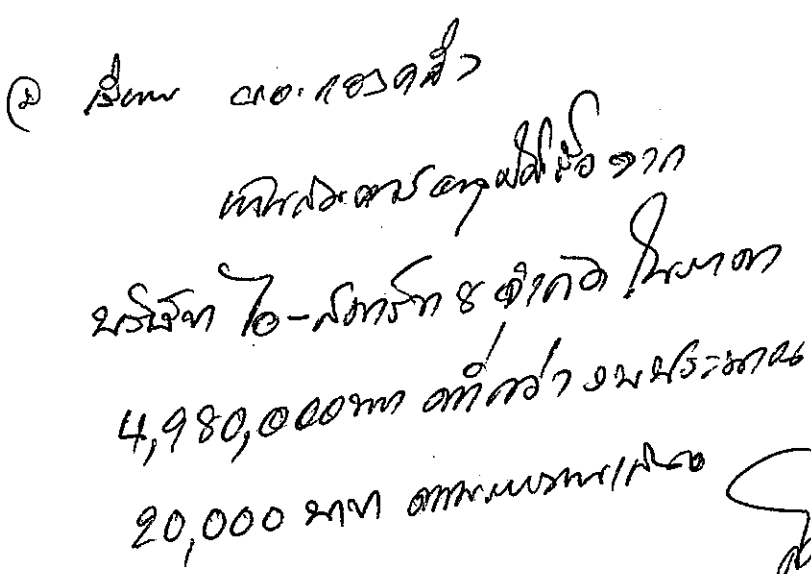 ② เรียน ผอ.กองคลัง
เห็นควรอนุมัติซื้อจาก
บริษัท ไอ-สมาร์ท 8 จำกัด ในราคา
4,980,000 บาท ต่ำกว่างบประมาณ
20,000 บาท ตามรายงาน